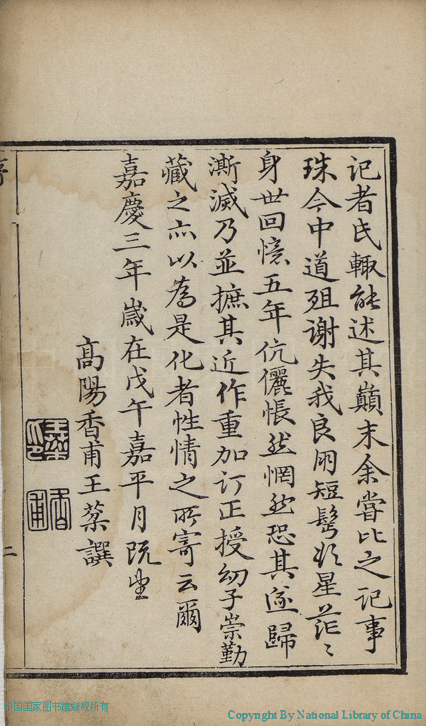 記者氏輙能述其巔末余嘗比之記事
珠今中道殂謝失我良朋短鬂欲星茫〻
身世回憶五年伉儷悵然惘然恐其遂歸
澌滅乃並摭其近作重加訂正授幼子崇勤
藏之亦以為是化者性情之所寄云爾
嘉慶三年歲在戊午嘉平月既望
高陽香甫王棻譔
香甫
二
中国国家图书馆版权所有
Copyright By National Library of China